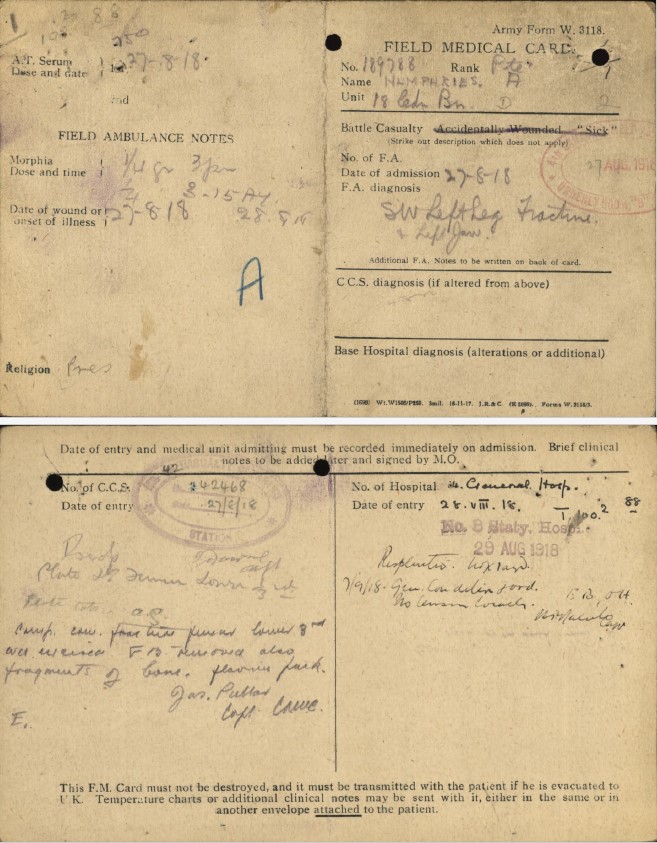 1
A.T. Serum
Dose and date
27-8-18
and
FIELD AMBULANCE NOTES
Morphia
Dose and time
1/4 gr 3 pm
1/4 3-15 AM
Date of wound or
onset of illness
27-8-18
28.8
A
Religion Pres
Army Form W. 3118.
FIELD MEDICAL CARD.
No. 189788 Rank Pte
Name HUMPHRIES. A
Unit 18 Cdn Bn. D
2
Battle Casualty Accidentally Wounded "Sick"
(Strike out description which does not apply)
No. of F.A.
Date of admission 27-8-18
27 AUG 1918
F.A. diagnosis
SW Left Leg Fracture.
& Left Jaw.
Additional F.A. Notes to be written on back of card.
C.C.S. diagnosis (if altered from above)
Base Hospital diagnosis (alterations or additional)
Date of entry and medical unit admitting must be recorded immediately on admission. Brief clinical
notes to be added later and signed by M.O.
42
No. of C.C.S. 342468
Date of entry 27/8/18
STATION
Femur Lower 3rd
Comp. com. fracture femur lower 3rd
excised F B removed also
fragments of bone. flavine pack.
Jas. Pullar
Capt CAMC.
E.
No. of Hospital General Hosp.
Date of entry 28.VIII.18. T. 100.2 88
No. 8 Staty. Hospi
29 AUG 1918
7/9/18. Gen. Condition Good.
This F.M. Card must not be destroyed, and it must be transmitted with the patient if he is evacuated to
U K. Temperature charts or additional clinical notes may be sent with it, either in the same or in
another envelope attached to the patient.